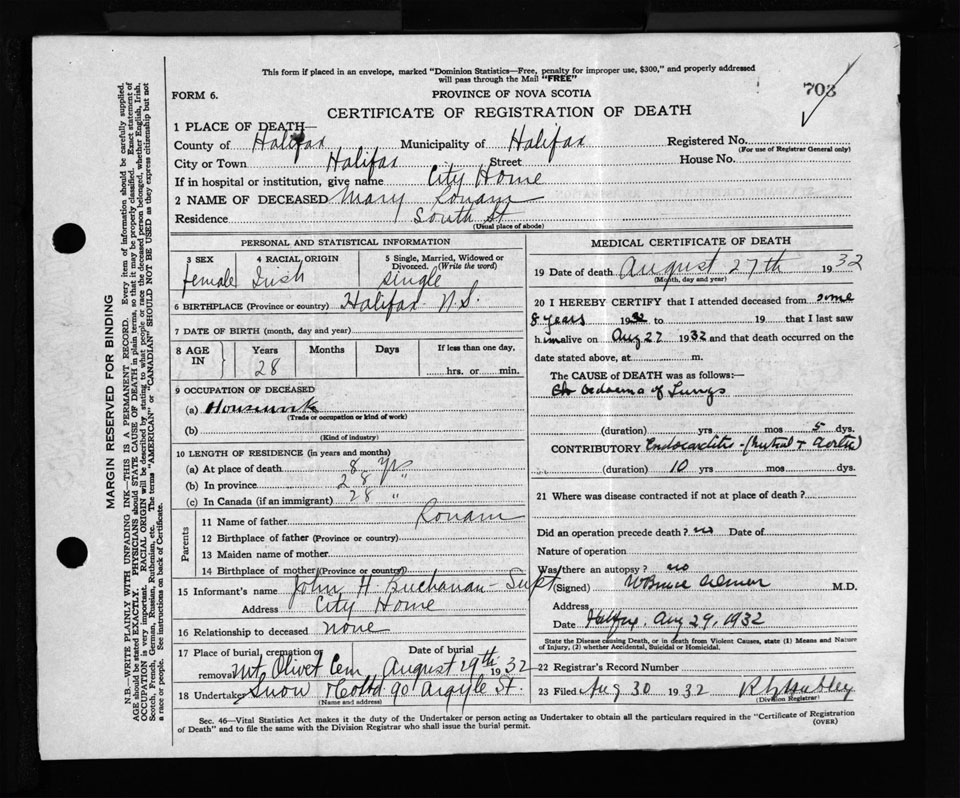 This form if placed in an envelope, marked "Dominion Statistics—Free, penalty for improper use, $300," and properly addressed
will pass through the Mail "FREE"
703
FORM 6.
PROVINCE OF NOVA SCOTIA
CERTIFICATE OF REGISTRATION OF DEATH
1 PLACE OF DEATH—
County of Halifax Municipality of Halifax Registered No.
(For use of Registrar General only)
City or Town Halifax Street House No.
If in hospital or institution, give name City Home
2 NAME OF DECEASED Mary Ronam
Residence South St
(Usual place of abode)
PERSONAL AND STATISTICAL INFORMATION
3 SEX 4 RACIAL ORIGIN 5 Single, Married, Widowed or
Divorced. (Write the word)
female Irish single
6 BIRTHPLACE (Province or country) Halifax N.S.
7 DATE OF BIRTH (month, day and year)
8 AGE IN Years Months Days If less than one day,
28 hrs. or min.
9 OCCUPATION OF DECEASED
(a) Housework
(Trade or occupation or kind of work)
(b)
(Kind of industry)
10 LENGTH OF RESIDENCE (in years and months)
(a) At place of death 8 yrs
(b) In province 28 "
(c) In Canada (if an immigrant) 28 "
Parents
11 Name of father Ronam
12 Birthplace of father (Province or country)
13 Maiden name of mother
14 Birthplace of mother (Province or country)
15 Informant's name John H. Buchanan - Supt
Address City Home
16 Relationship to deceased none
17 Place of burial, cremation or removal Date of burial
Mt Olivet Cem August 29th 1932
18 Undertaker Snow & Co Ltd 90 Argyle St.
(Name and address)
MEDICAL CERTIFICATE OF DEATH
19 Date of death August 27th 1932
(Month, day and year)
20 I HEREBY CERTIFY that I attended deceased from some
8 years 1932 to 19 that I last saw
h im alive on Aug 27 1932 and that death occurred on the
date stated above, at m.
The CAUSE OF DEATH was as follows:—
Oedaema of Lungs
(duration) yrs mos 5 dys.
CONTRIBUTORY Endocarditis - (Mitral & Aortic)
(duration) 10 yrs mos dys.
21 Where was disease contracted if not at place of death?
Did an operation precede death? no Date of
Nature of operation
Was there an autopsy? no
(Signed) M.D.
Address
Date Halifax. Aug 29, 1932
State the Disease causing Death, or in death from Violent Causes, state (1) Means and Nature
of Injury, (2) whether Accidental, Suicidal or Homicidal.
22 Registrar's Record Number
23 Filed Aug 30 1932
(Division Registrar)
Sec. 46—Vital Statistics Act makes it the duty of the Undertaker or person acting as Undertaker to obtain all the particulars required in the "Certificate of Registration
of Death" and to file the same with the Division Registrar who shall issue the burial permit. (OVER)
MARGIN RESERVED FOR BINDING
N.B.—WRITE PLAINLY WITH UNFADING INK—THIS IS A PERMANENT RECORD. Every item of information should be carefully supplied.
AGE should be stated EXACTLY. PHYSICIANS should STATE CAUSE OF DEATH in plain terms, so that it may be properly classified. Exact statement of
OCCUPATION is very important. RACIAL ORIGIN will be described by stating to what people or race the deceased person belonged, whether English, Irish,
Scotch, French, German, Russian, Ruthenian, etc. The terms "AMERICAN" or "CANADIAN" SHOULD NOT BE USED as they express citizenship but not
a race or people. See instructions on back of Certificate.